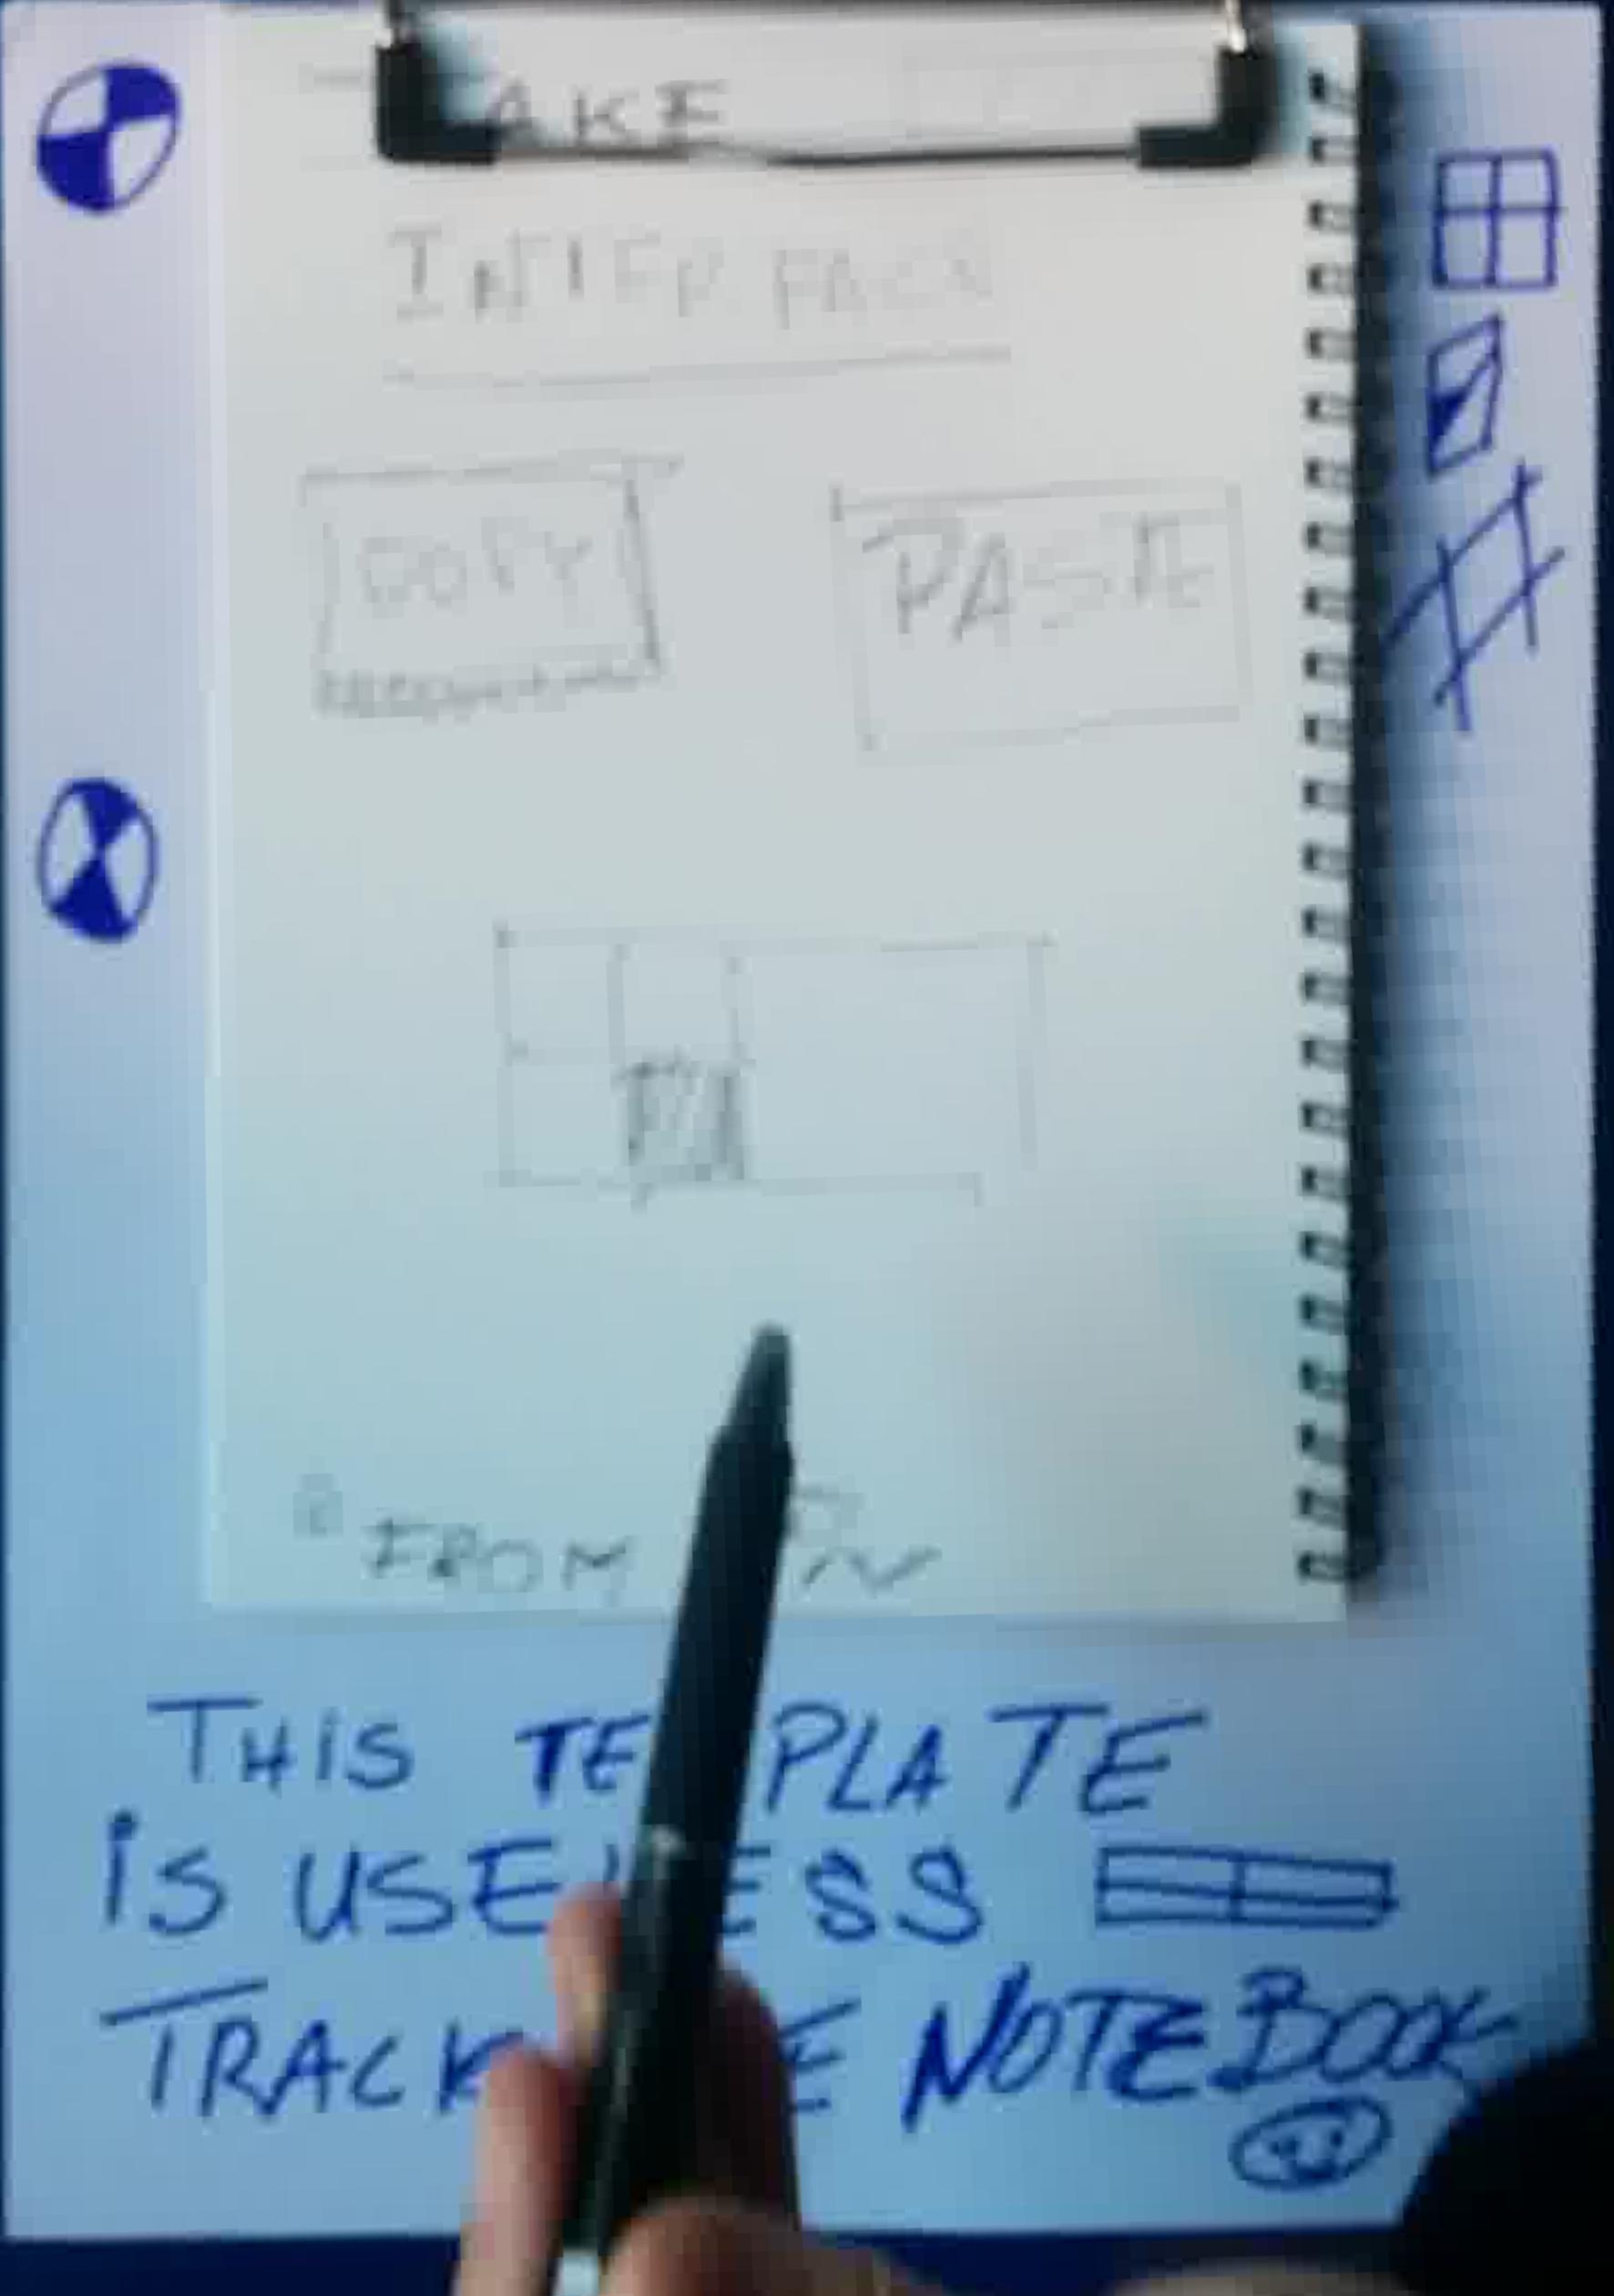 AKE
INTERFACE
COPY PASTE
FROM
THIS TE PLATE
iS USE ESS
TRACK E NOTEBOOK